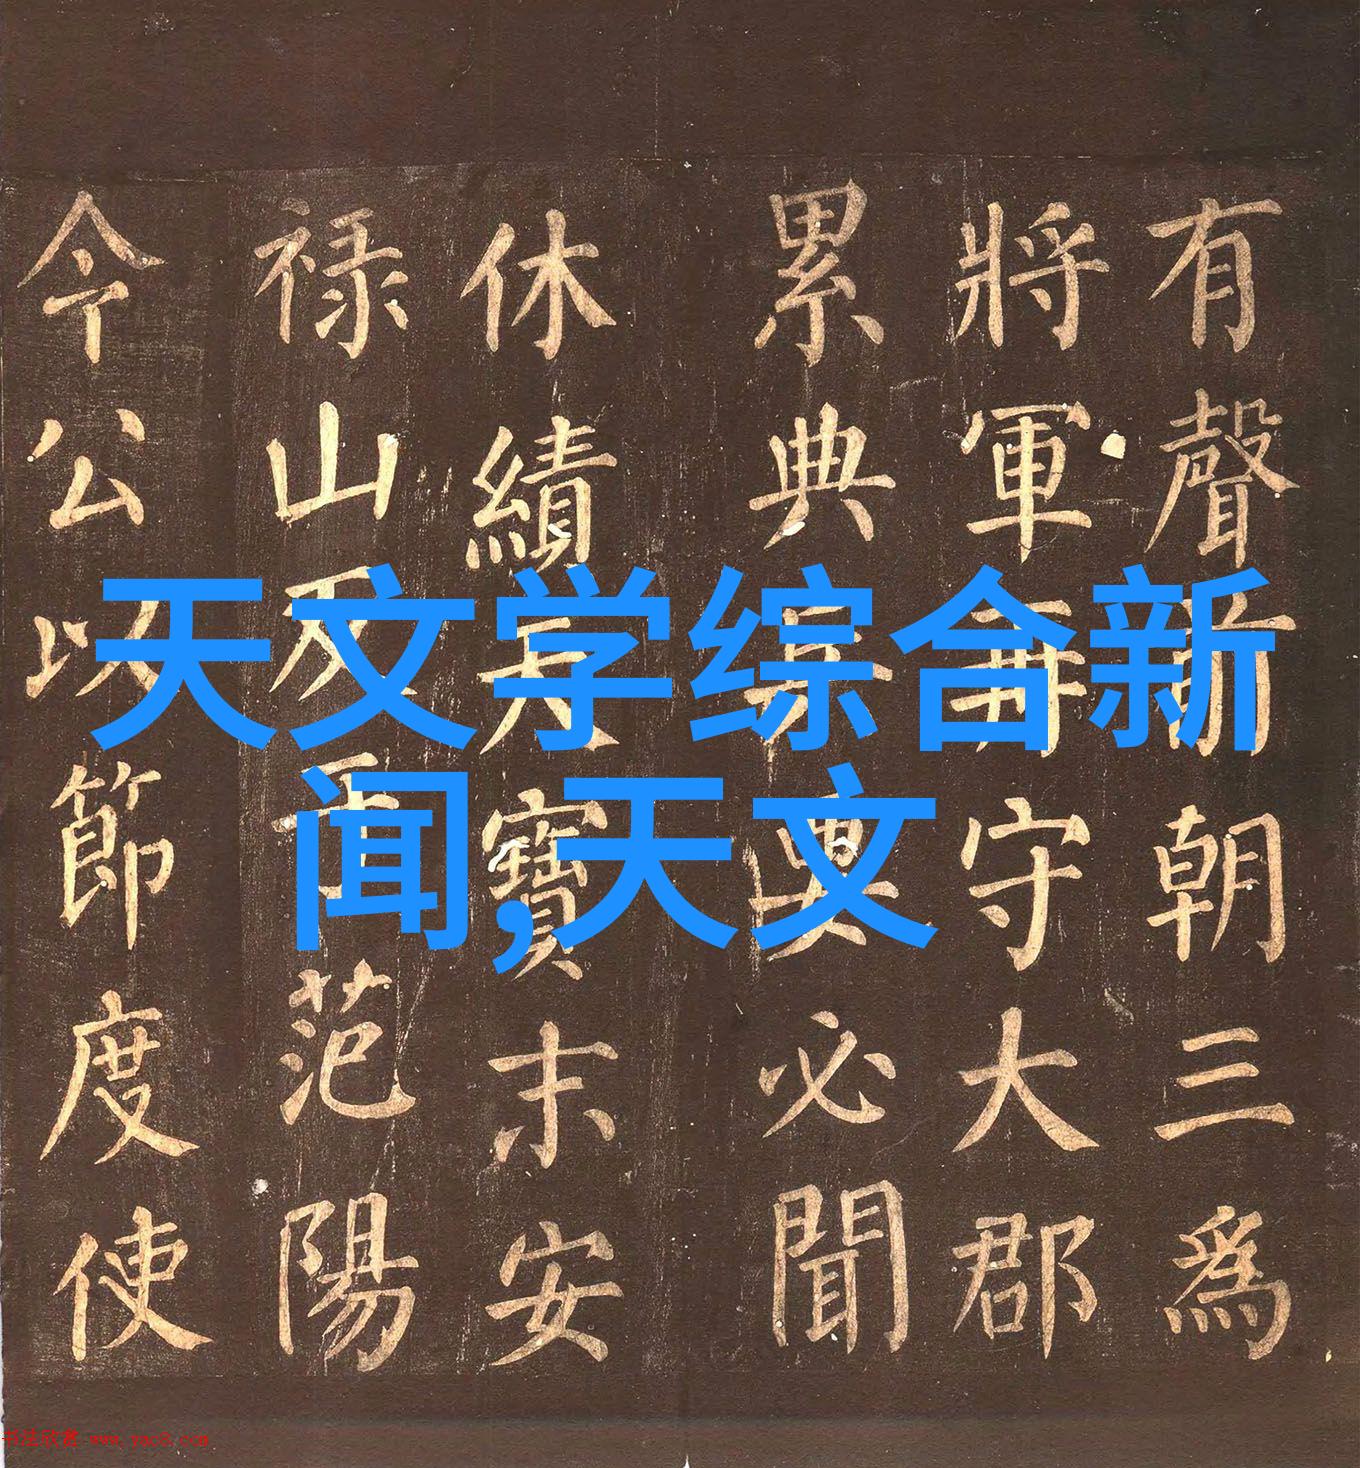 天文学综合新
闻,天文
有聲朝三爲
將軍再守大郡
累典兵必聞
休績天寶末安
禄山反于范陽
令公以節度使
书法欣赏 www.yac8.com